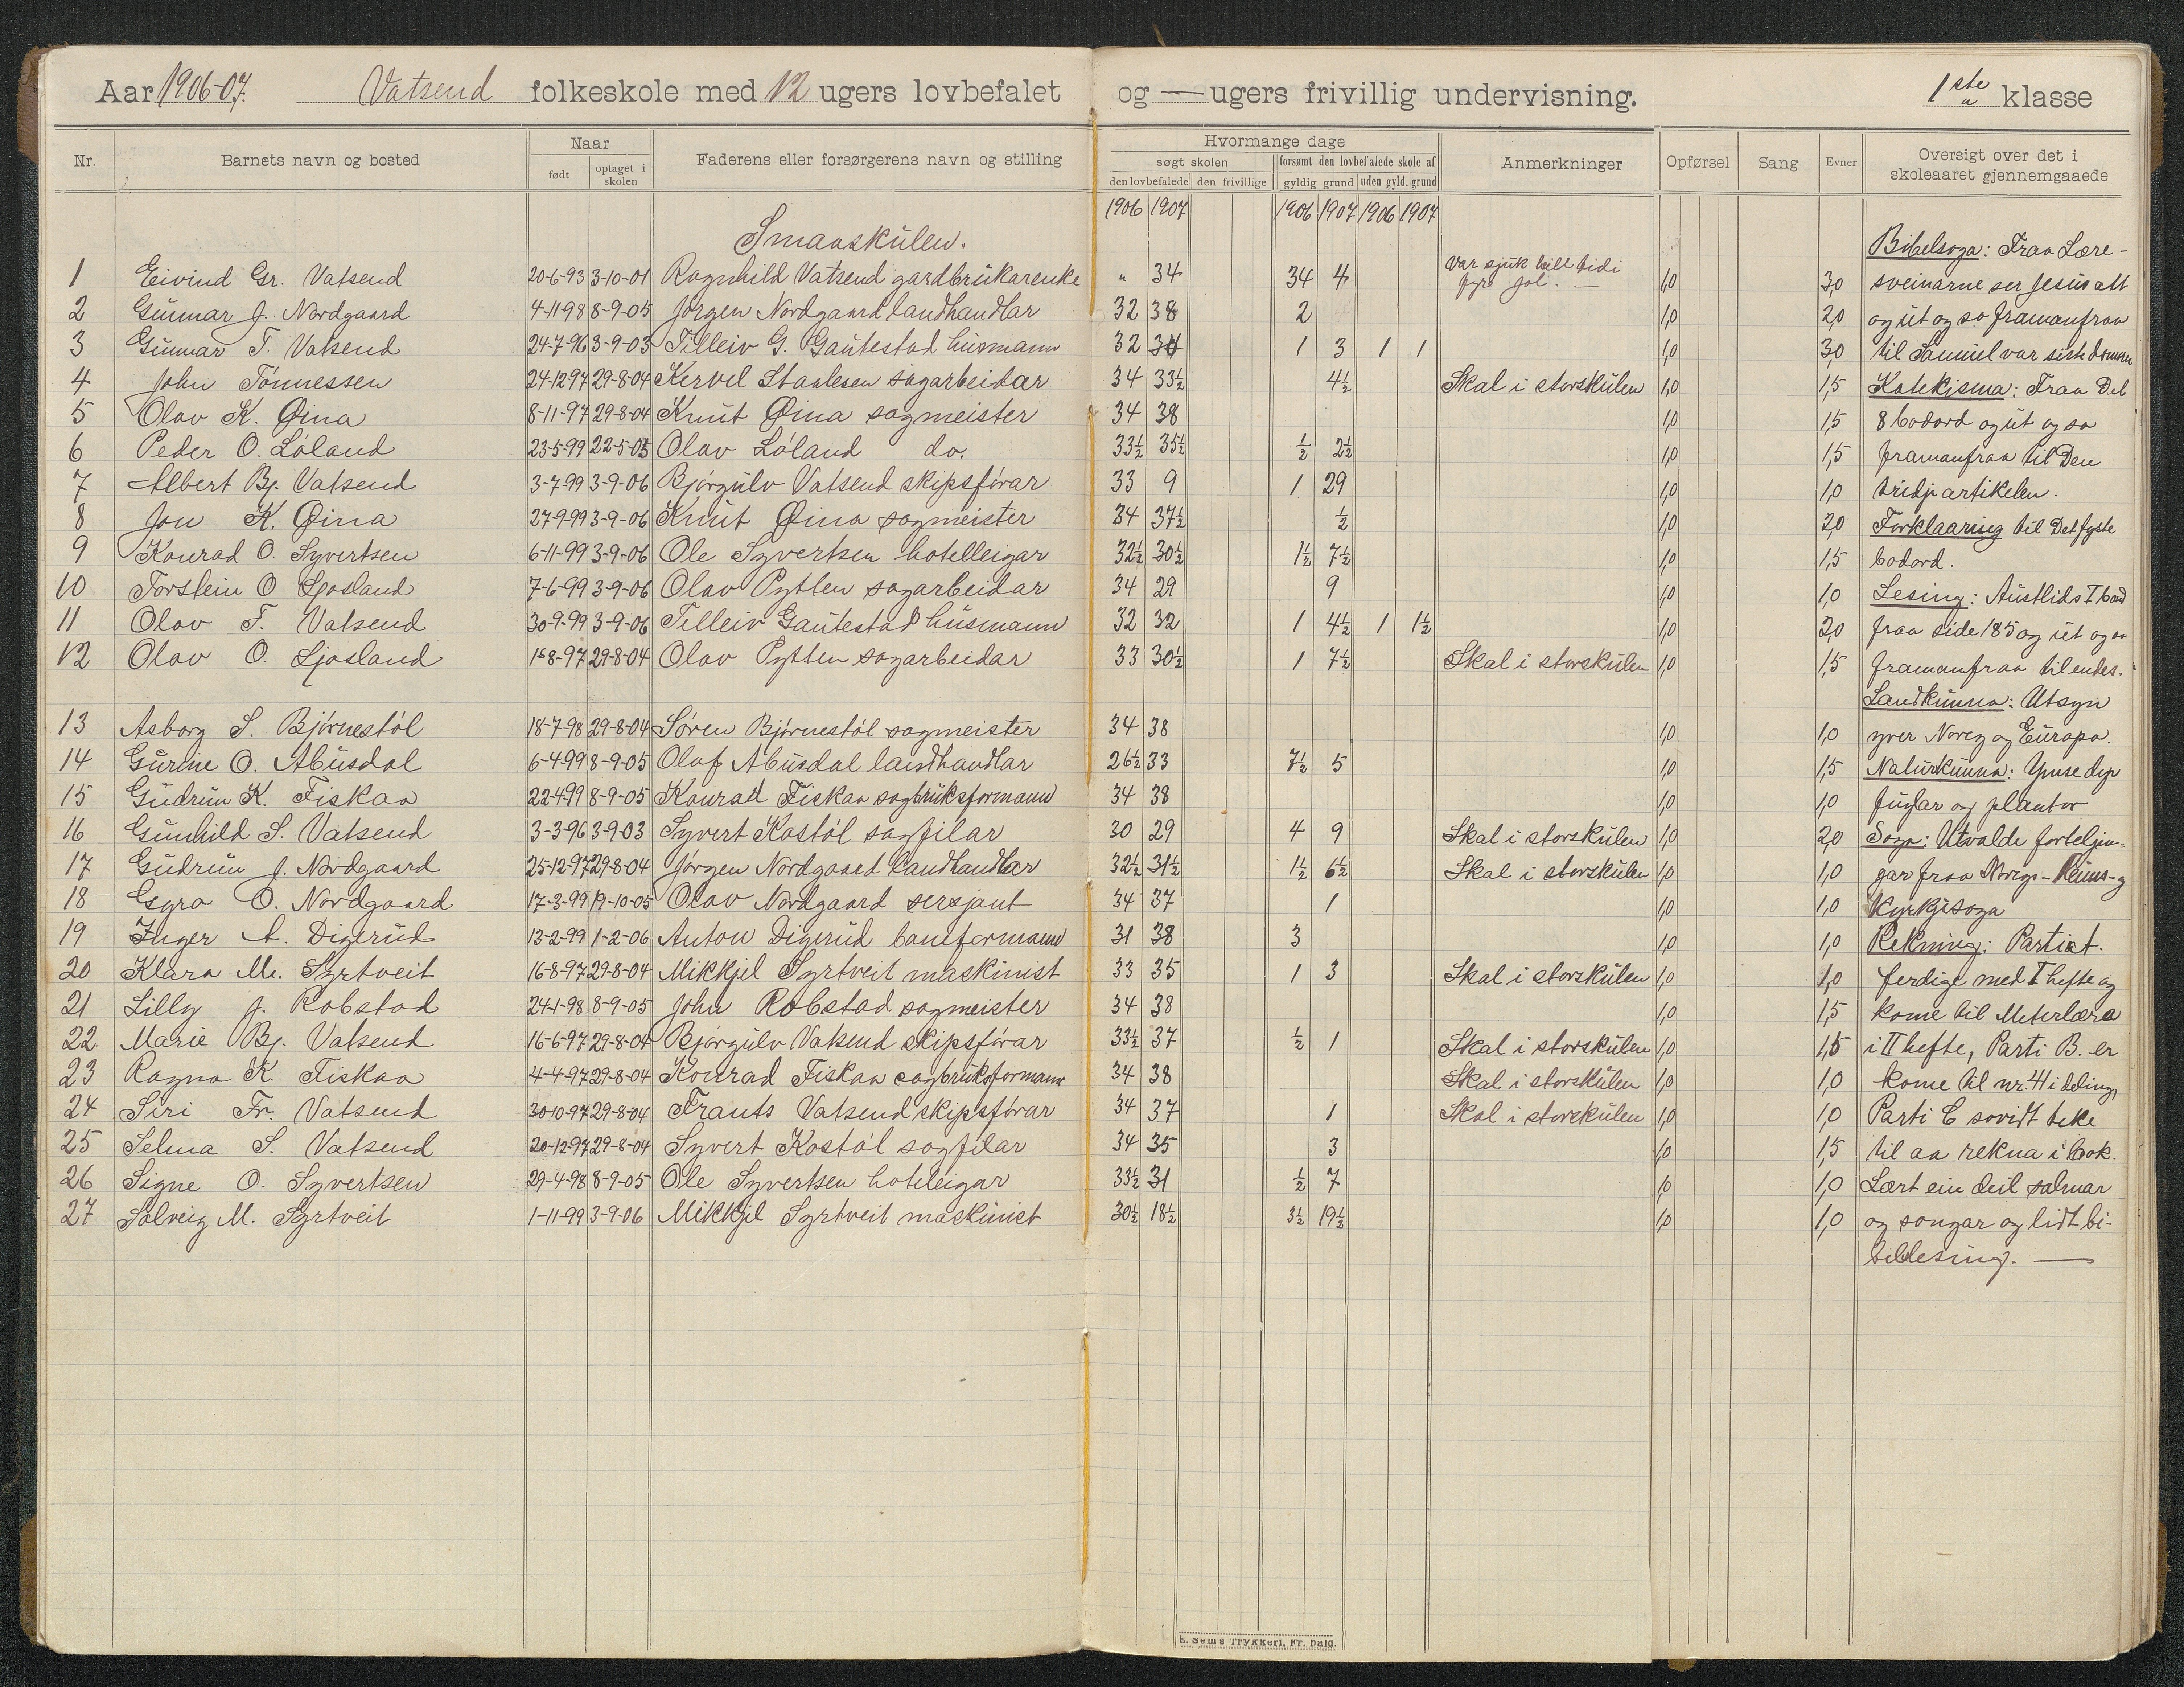 Aar 1906-07. Vatsend folkeskole med 12 ugers lovbefalet og — ugers frivillig undervisning. 1ste a klasse
Nr. Barnets navn og bosted Naar født optaget i skolen Faderens eller forsørgerens navn og stilling Hvormange dage søgt skolen den lovbefalede den frivillige forsømt den lovbefalede skole af gyldig grund uden gyld. grund Anmerkninger Opførsel Sang Evner Oversigt over det i skoleaaret gjennemgaaede
1906 1907 1906 1907 1906 1907
Smaaskulen.
Bibelsoga: Fraa Lære-
1 Eivind Gr. Vatsend 20-6-93 3-10-01 Ragnhild Vatsend gardbrukarenke " 34 34 4 Var sjuk till tidi fyre jol. — 1,0 3,0 sveinarne ser Jesus att
2 Gunnar J. Nordgaard 4-11-98 8-9-05 Jørgen Nordgaard landhandlar 32 38 2 1,0 2,0 og ut og so framanfraa
3 Gunnar T. Vatsend 24-7-96 3-9-03 Tilleiv G. Gautestad husmann 32 34 1 3 1 1 1,0 3,0 til Samuel var siste domaren
4 John Tønnessen 24-12-97 29-8-04 Kervel Staalesen sagarbeidar 34 33½ 4½ Skal i storskulen 1,0 1,5 Katekisma: Fraa Det
5 Olav K. Øina 8-11-97 29-8-04 Knut Øina sagmeister 34 38 1,0 1,5 8 bodord og ut og so
6 Peder O. Løland 23-5-99 22-5-05 Olav Løland do. 33½ 35½ ½ 2½ 1,0 1,5 framanfraa til Den
7 Albert Bj. Vatsend 3-7-99 3-9-06 Bjørgulv Vatsend skipsførar 33 9 1 29 1,0 1,0 tridje artikelen.
8 Jon K. Øina 27-9-99 3-9-06 Knut Øina sagmeister 34 37½ ½ 1,0 2,0 Forklaaring til Det fyste
9 Konrad O. Syvertsen 6-11-99 3-9-06 Ole Syvertsen hotelleigar 32½ 30½ 1½ 7½ 1,0 1,5 bodord.
10 Torstein O Ljosland 7-6-99 3-9-06 Olav Pytten sagarbeidar 34 29 9 1,0 1,0 Lesing: Austlids I band
11 Olav T. Vatsend 30-9-99 3-9-06 Tilleiv Gautestad husmann 32 32 1 4½ 1 1½ 1,0 2,0 fraa side 185 og ut og so
12 Olav O. Ljosland 1-8-97 29-8-04 Olav Pytten sagarbeidar 33 30½ 1 7½ Skal i storskulen 1,0 1,5 framanfraa til endes.
Landkunna: Utsyn
13 Asborg S. Bjørnestøl 18-7-98 29-8-04 Søren Bjørnestøl sagmeister 34 38 1,0 1,0 yver Noreg og Europa.
14 Gurine O. Abusdal 6-4-99 8-9-05 Olaf Abusdal landhandlar 26½ 33 7½ 5 1,0 1,5 Naturkunna: Ymse dyr
15 Gudrun K. Fiskaa 22-4-99 8-9-05 Konrad Fiskaa sagbruksformann 34 38 1,0 1,0 fuglar og plantor
16 Gunhild S. Vatsend 3-3-96 3-9-03 Syvert Kostøl sagfilar 30 29 4 9 Skal i storskulen 1,0 2,0 Soga: Utvalde forteljin-
17 Gudrun J. Nordgaard 25-12-97 29-8-04 Jørgen Nordgaard landhandlar 32½ 31½ 1½ 6½ Skal i storskulen 1,0 1,0 gar fraa Noregs- Heims- og
18 Gyro O. Nordgaard 17-3-99 19-10-05 Olav Nordgaard sersjant 34 37 1 1,0 1,0 Kyrkjesoga
19 Inger A. Digerud 13-2-99 1-2-06 Anton Digerud baneformann 31 38 3 1,0 1,0 Rekning: Parti A.
20 Klara M. Syrtveit 16-8-97 29-8-04 Mikkjel Syrtveit maskinist 33 35 1 3 Skal i storskulen 1,0 1,0 ferdige med I hefte og
21 Lilly J. Robstad 24-1-98 8-9-05 John Robstad sagmeister 34 38 1,0 1,5 kome til Meterlæra
22 Marie Bj. Vatsend 16-6-97 29-8-04 Bjørgulv Vatsend skipsførar 33½ 37 ½ 1 Skal i storskulen 1,0 1,5 i II hefte, Parti B. er
23 Ragna K. Fiskaa 4-4-97 29-8-04 Konrad Fiskaa sagbruksformann 34 38 Skal i storskulen 1,0 1,0 kome til nr. 4 i deling,
24 Siri Fr. Vatsend 30-10-97 29-8-04 Frants Vatsend skipsførar 34 37 1 Skal i storskulen 1,0 1,0 Parti C sovidt teke
25 Selma S. Vatsend 20-12-97 29-8-04 Syvert Kostøl sagfilar 34 35 3 1,0 1,5 til aa rekna i bok.
26 Signe O. Syvertsen 29-4-98 8-9-05 Ole Syvertsen hoteleigar 33½ 31 ½ 7 1,0 1,0 Lært ein deil salmar
27 Solveig M. Syrtveit 1-11-99 3-9-06 Mikkjel Syrtveit maskinist 30½ 18½ 3½ 19½ 1,0 1,0 og songar og lidt bi-
bellesing. —
E. Sem's Trykkeri, Fr. hald.